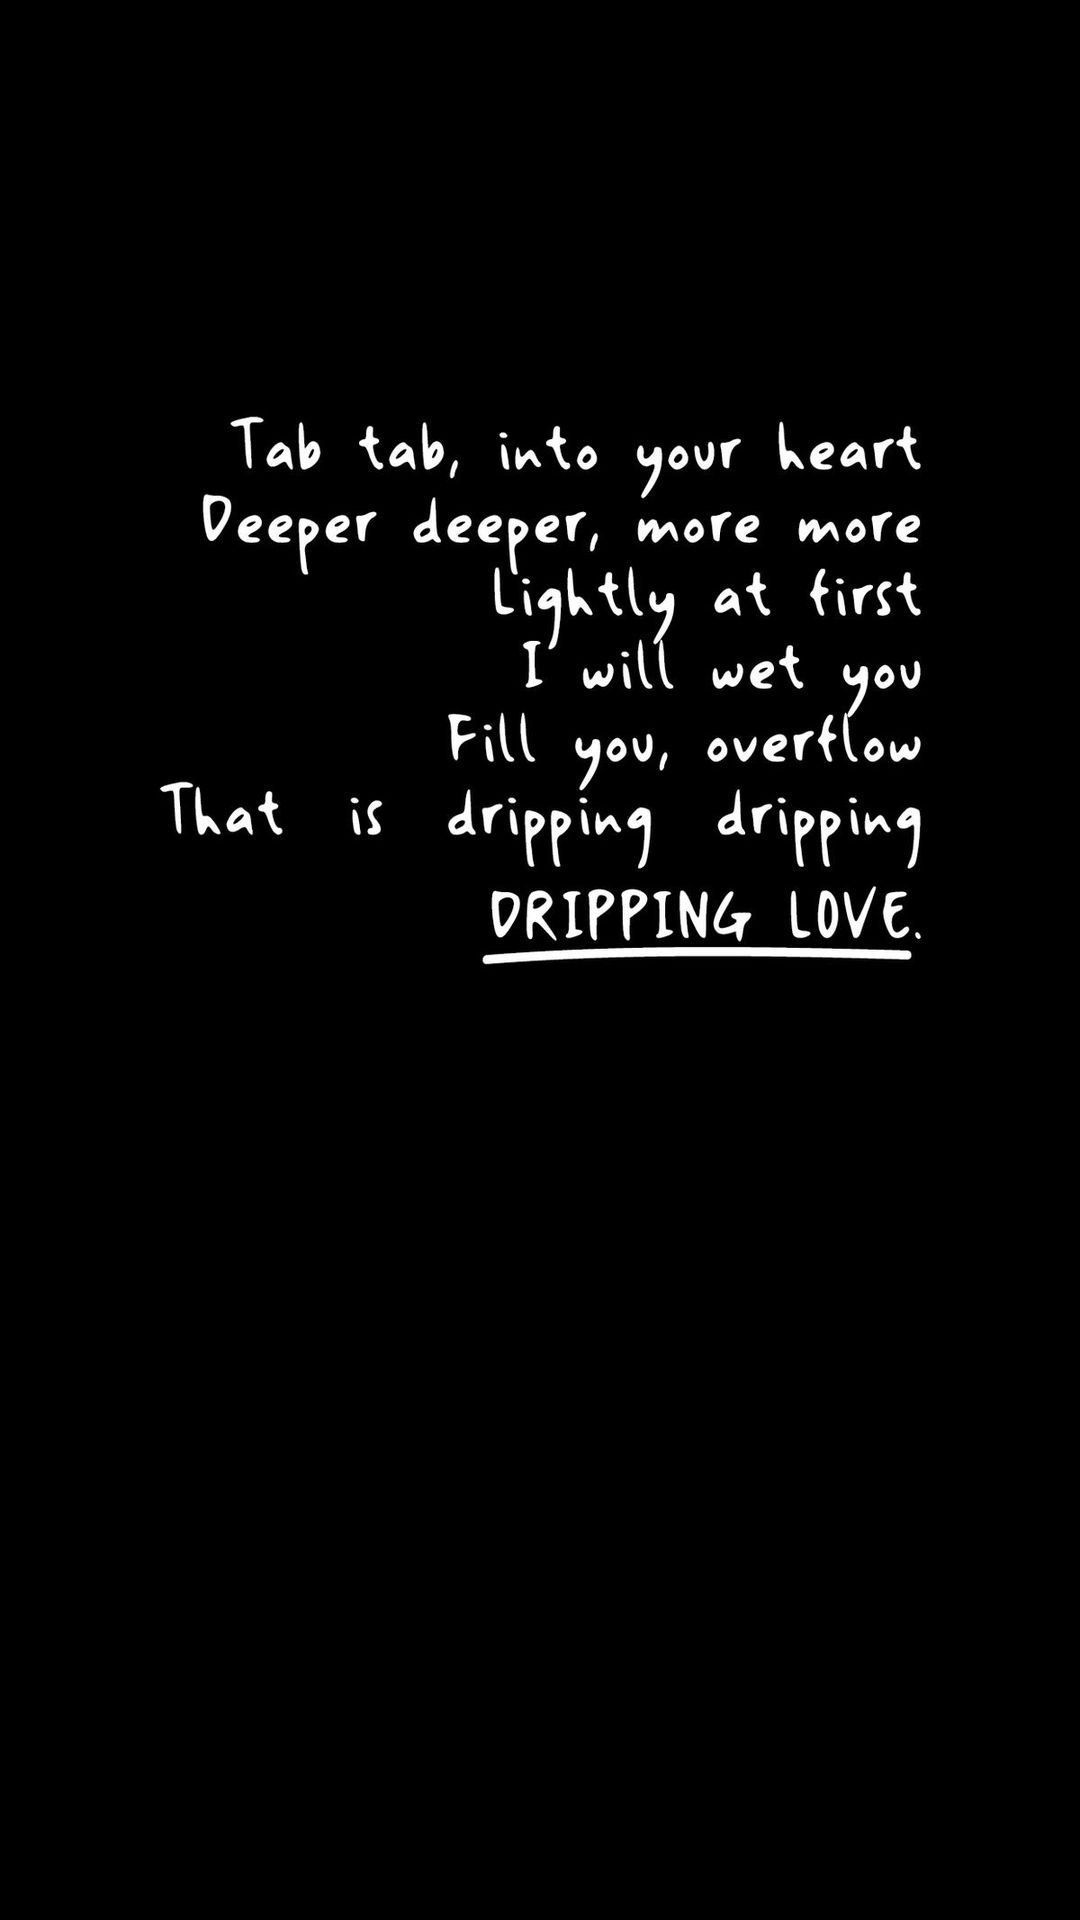 Tab tab, into your heart
Deeper deeper, more more
Lightly at first
I will wet you
Fill you, overflow
That is dripping dripping
DRIPPING LOVE.